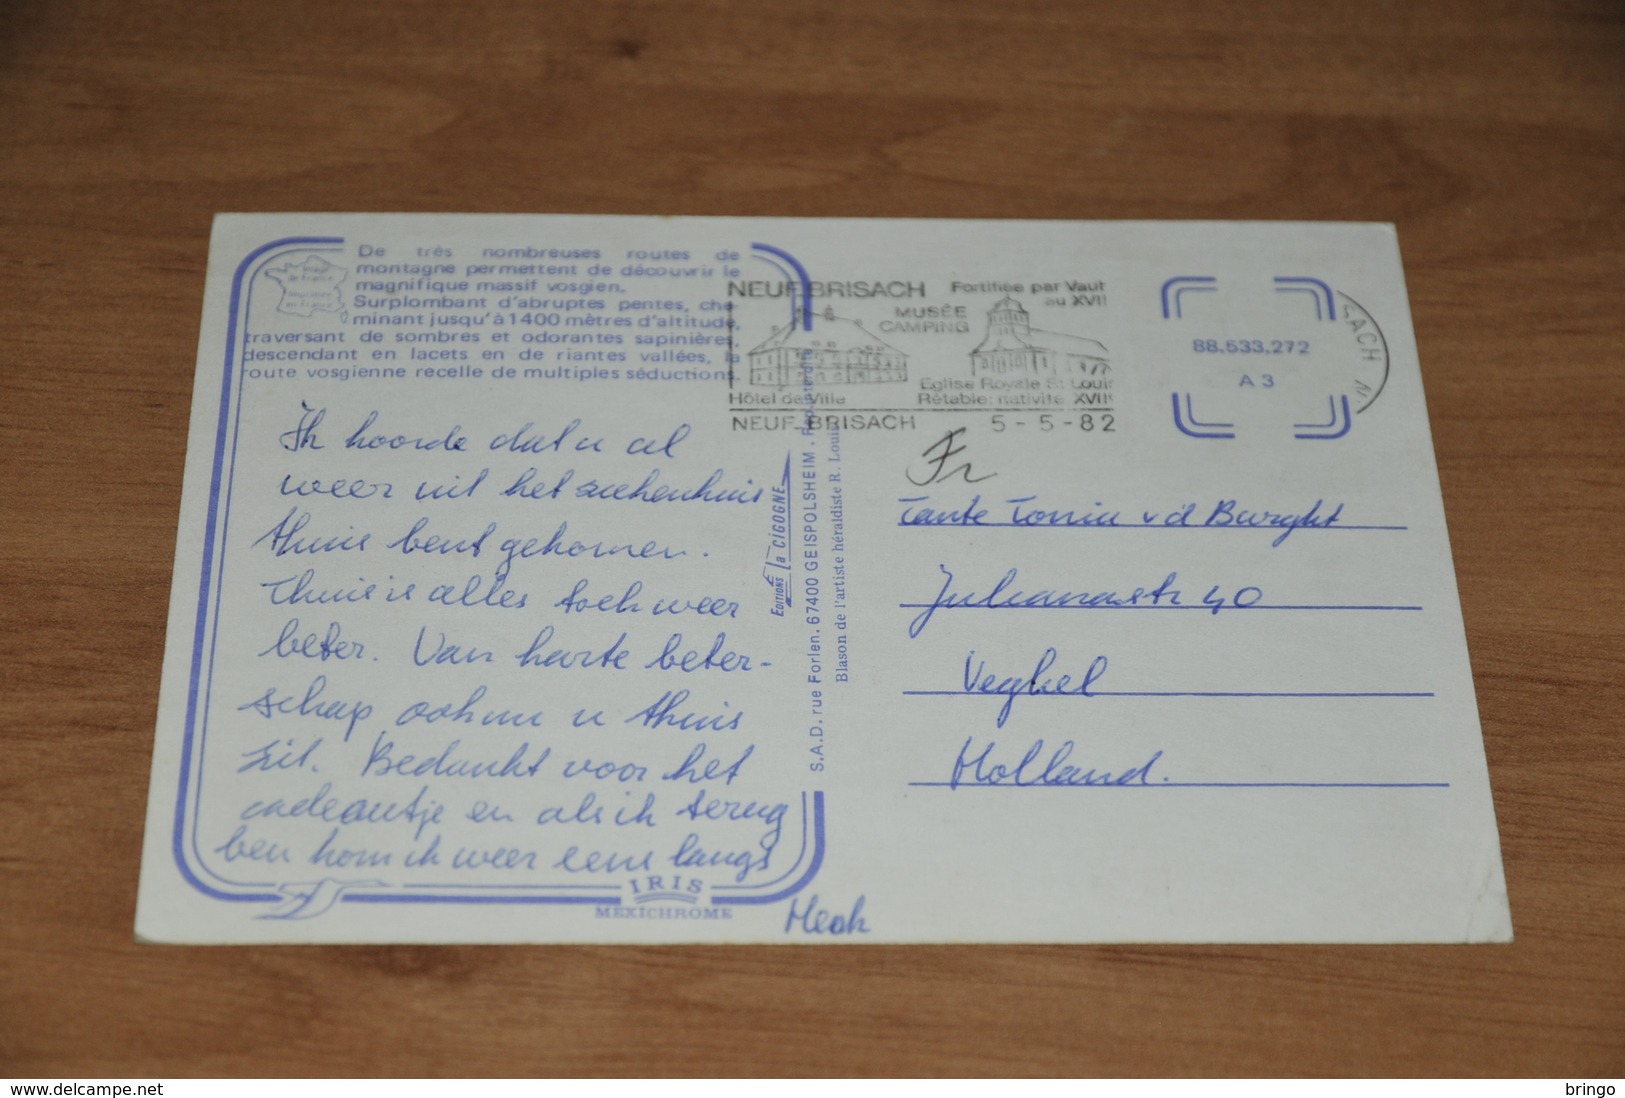 De très nombreuses routes de
montagne permettent de découvrir le
magnifique massif vosgien.
Surplombant d'abruptes pentes, che-
minant jusqu'à 1400 mètres d'altitude,
traversant de sombres et odorantes sapinières,
descendant en lacets en de riantes vallées, la
route vosgienne recelle de multiples séductions.
Image de France
en France
Ik hoorde dat u al
weer uit het ziekenhuis
thuis bent gekomen.
Thuis is alles toch weer
beter. Van harte beter-
schap ook nu u thuis
zit. Bedankt voor het
cadeautje en als ik terug
ben kom ik weer eens langs
IRIS
MEXICHROME
EDITIONS la CIGOGNE
S.A.D. rue Forlen. 67400 GEISPOLSHEIM . Rep. interdite
Blason de l'artiste héraldiste R. Louis
NEUF BRISACH Fortifiée par Vaut
au XVII
MUSÉE
CAMPING
Hôtel de Ville
Eglise Royale St Louir
Rétable: nativité XVII
NEUF-BRISACH 5-5-82
88.533.272
A 3
Fr
Tante Tonia v d Burght
Julianastr 40
Veghel
Holland.